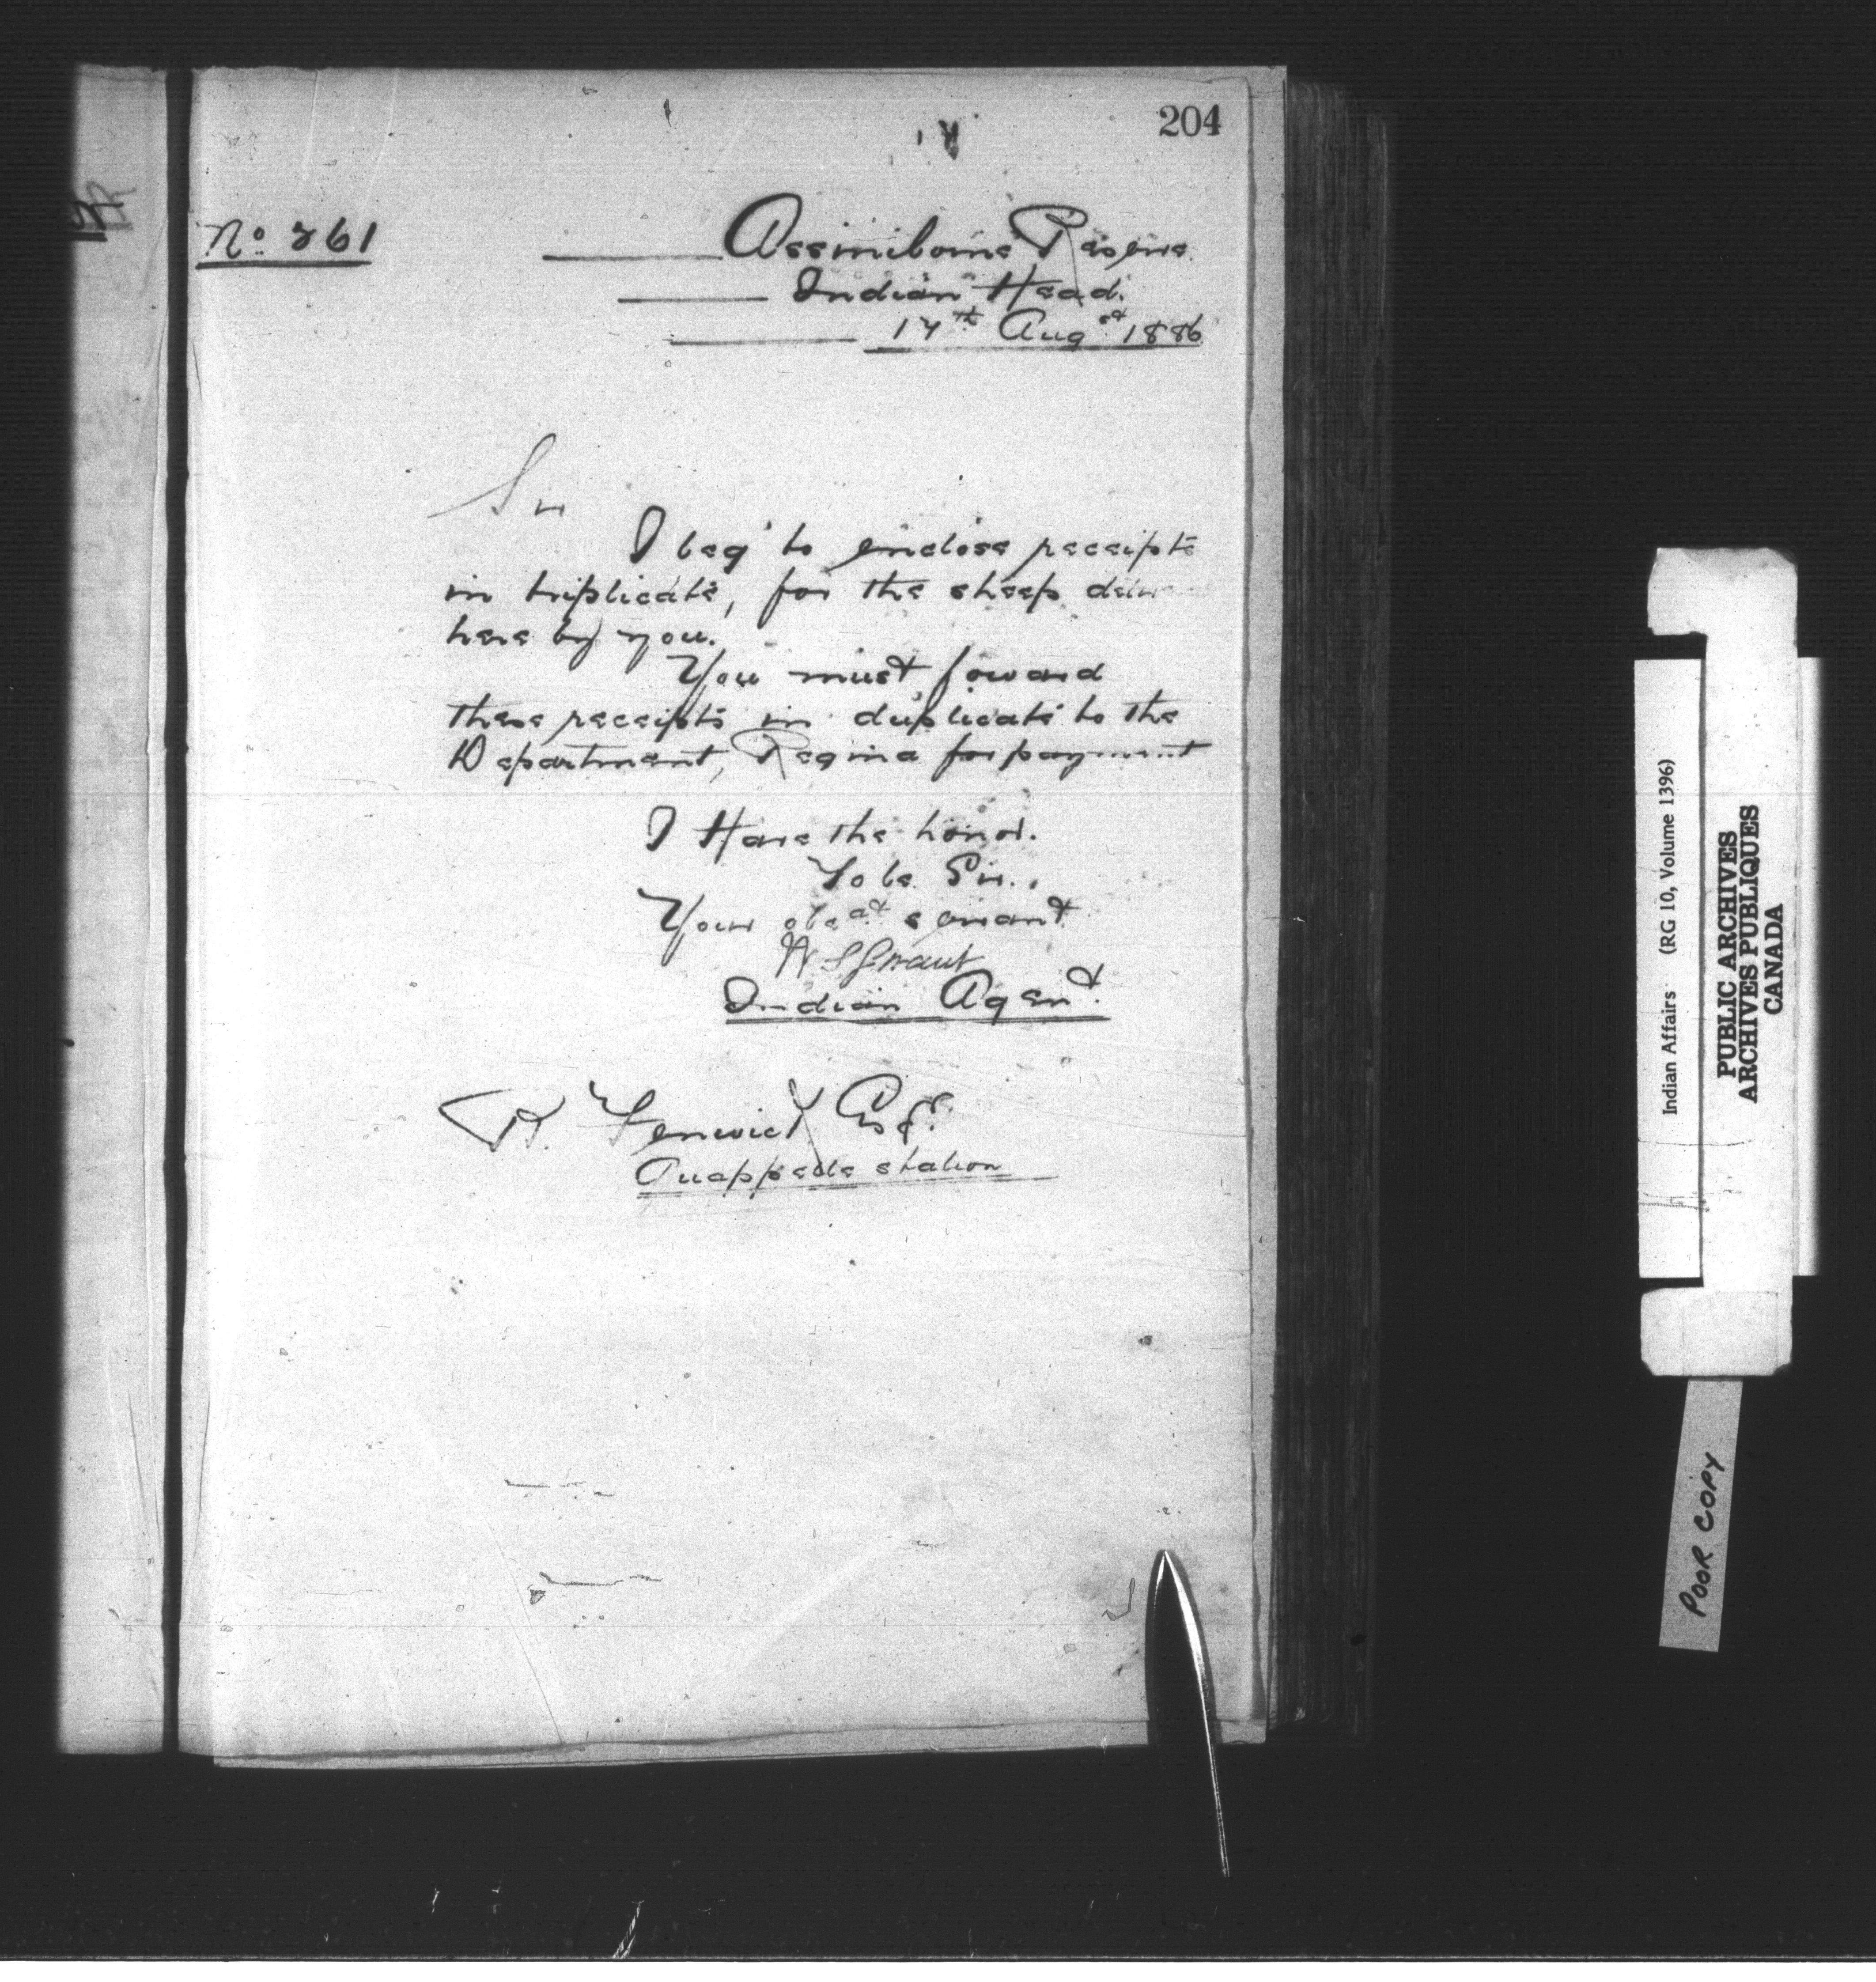 204
No 261
Assiniboine Reserve
Indian Head.
17th Augst 1886
Sir
I beg to enclose receipts
in triplicate, for the sheep
here by you.
You must foward
these receipts in duplicate to the
Department, Regina for payment
I Have the honor.
To be Sir.
Your obedt servant
W S Grant
Indian Agent.
R. Fenwick Esqr.
Quappelle station
Indian Affairs (RG 10, Volume 1396)
PUBLIC ARCHIVES
ARCHIVES PUBLIQUES
CANADA
POOR COPY